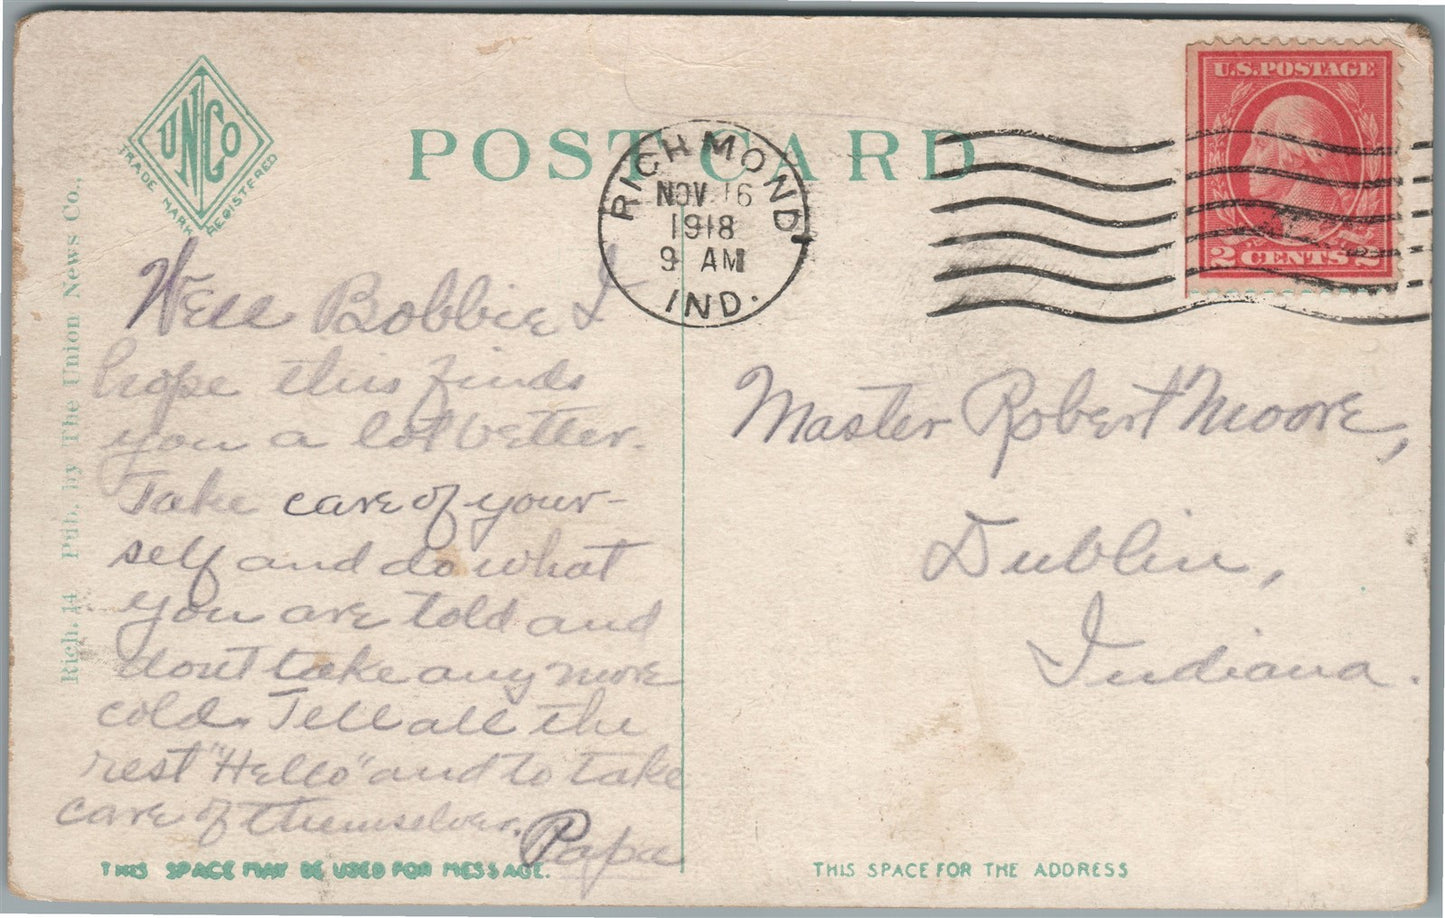 UNCo
TRADE MARK REGISTERED
POST CARD
RICHMOND
NOV. 16
1918
9 AM
IND.
U.S.POSTAGE
2 CENTS 2
Rich. 14 Pub. by The Union News Co.,
Well Bobbie I
hope this finds
you a lot better.
Take care of your-
self and do what
you are told and
dont take any more
cold. Tell all the
rest "Hello" and to take
care of themselves.
Papa
Master Robert Moore,
Dublin,
Indiana.
THIS SPACE MAY BE USED FOR MESSAGE.
THIS SPACE FOR THE ADDRESS